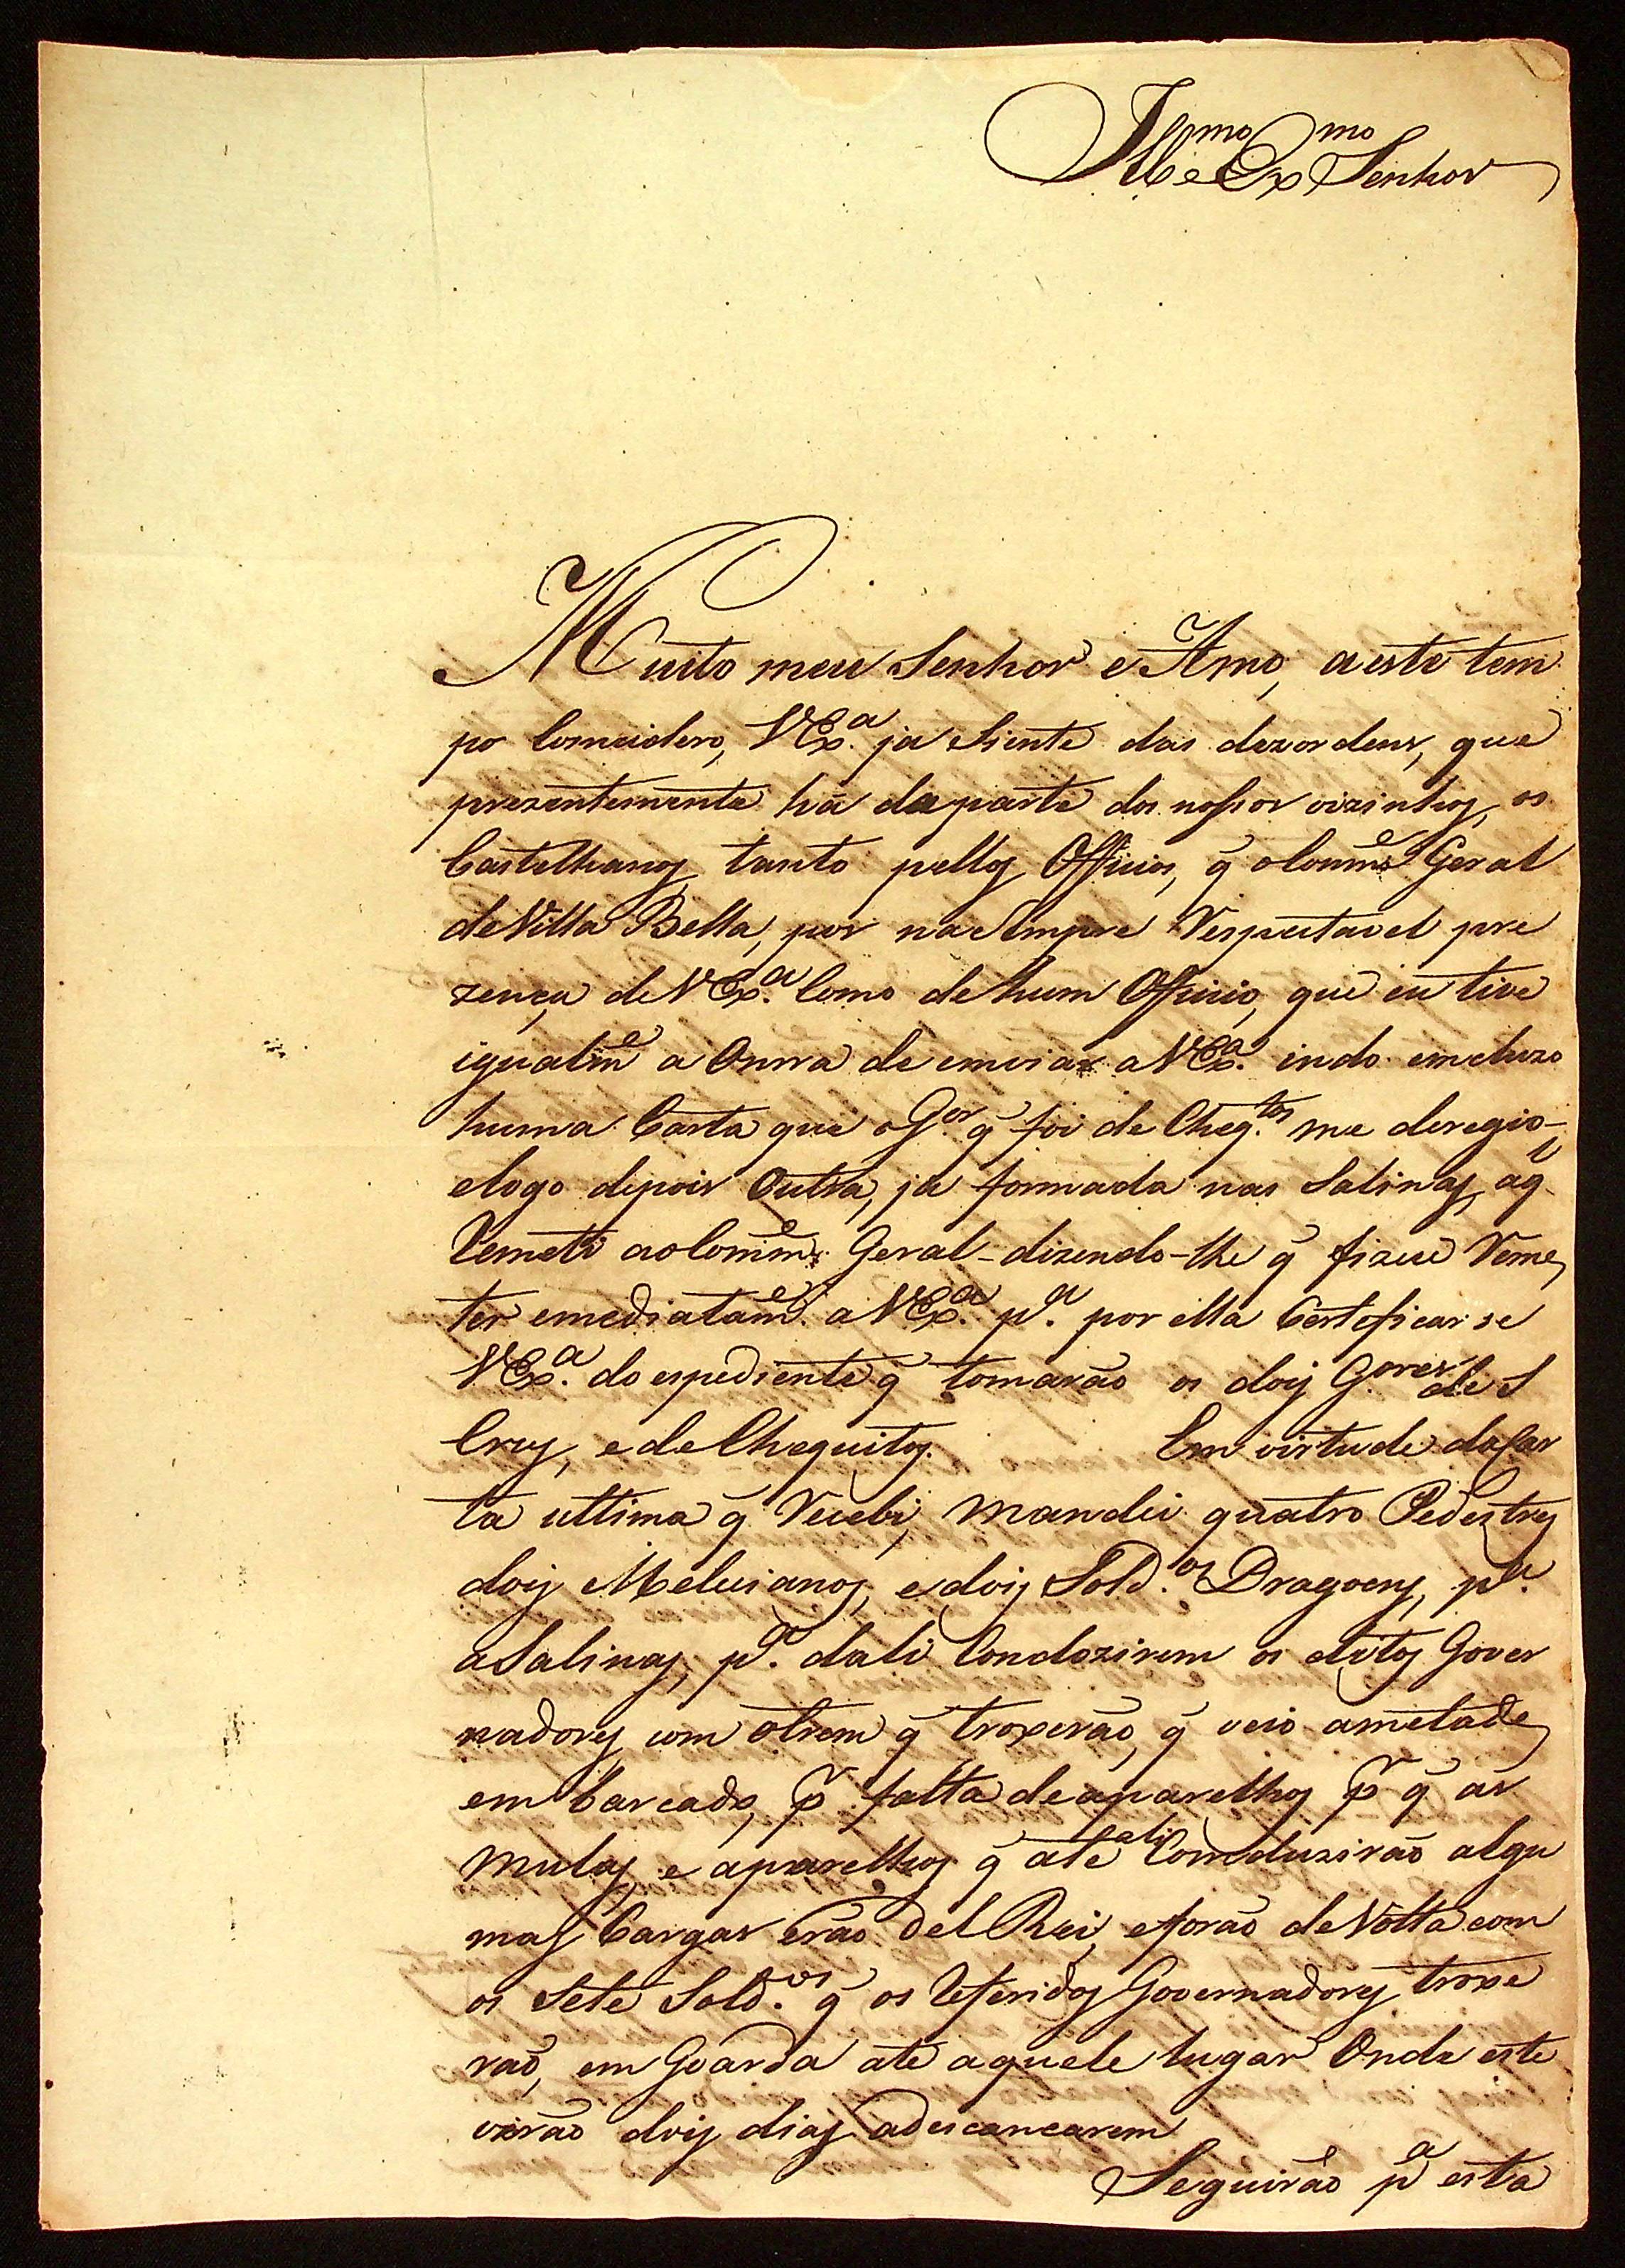 Illmo e Exmo Senhor
Muito meu Senhor e Amo, a este tem
po Comcidero, VExa. ja Siente das dezordens, que
prezentemente há da parte dos nossos vizinhos, os
Castelhanos, tanto pellos Officios, q̃ o Comme Geral
de Villa Bella, por na sempre Respeitavel pre
zença de VExa. Como de hum Officio, que eu tive
igualme a Onrra de enviar a VExa. indo emcluzo
huma Carta que o Gor. q̃ foi de Cheqtos. me deregio-
e logo depois Outra, ja formada nas Salinas, a q̃
Remeti ao Comme. Geral - dizendo-lhe q̃ fizese Reme,
ter emediatame. a VExa. pa. por ella Certeficar se
VExa. do espediente q̃ tomarão os dois Gores. de S
Cruz, e de Chequitos. Em virtude da Car
ta ultima q̃ Recebi, mandei quatro Pedestres
dois Melicianos, e dois Sold.os Dragoens, pa.
a Salinas, pa. dali Condozirem os ditos Gover
nadores, com o trem q̃ troxerão, q̃ veio a metade
em barcado, pr falta de aparelhos pr q̃ as
mulas, e aparelhos q̃ ate ali Comduzirão algu
mas Cargas erão del Rei, e forão de Volta com
os Sete Sold.os q̃ os Referidos Governadores troxe
rão, em Goarda ate aquele lugar Onde este
verão dois dias a descancarem
Seguirão pa esta